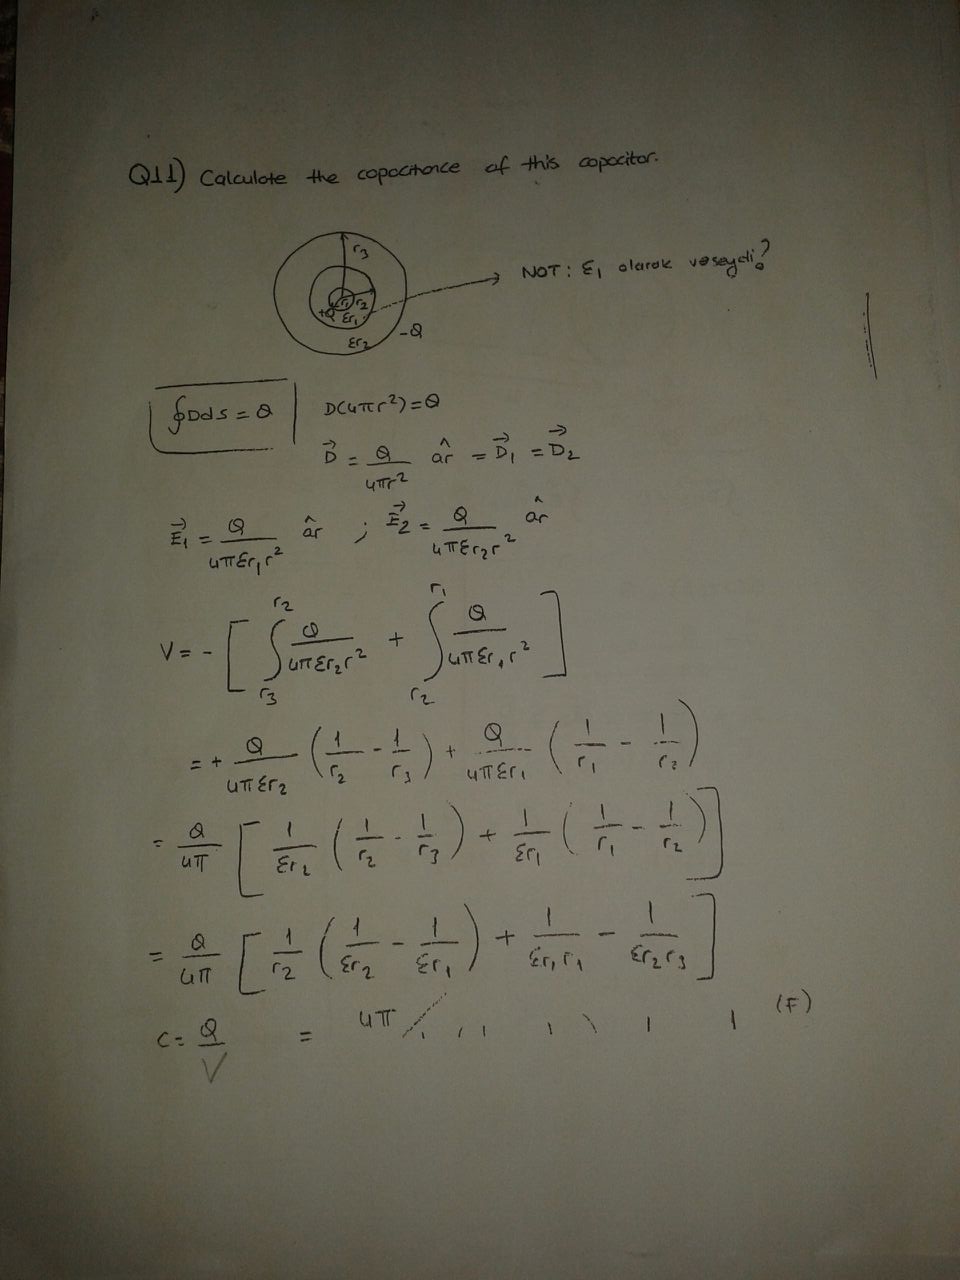 Q11) Calculate the capacitance of this capacitor.
r3
r1 r2
+Q
εr1
εr2
-Q
NOT: ε1 olarak verseydi?
∮Dds = Q
D(4πr²) = Q
D⃗ = Q/4πr² âr = D⃗1 = D⃗2
E⃗1 = Q/4πεr1r² âr ; E⃗2 = Q/4πεr2r² âr
V = - [ ∫_{r3}^{r2} Q/4πεr2r² + ∫_{r2}^{r1} Q/4πεr1r² ]
= + Q/4πεr2 (1/r2 - 1/r3) + Q/4πεr1 (1/r1 - 1/r2)
= Q/4π [ 1/εr2 (1/r2 - 1/r3) + 1/εr1 (1/r1 - 1/r2) ]
= Q/4π [ 1/r2 (1/εr2 - 1/εr1) + 1/εr1r1 - 1/εr2r3 ]
C = Q/V = 4π/ (F)